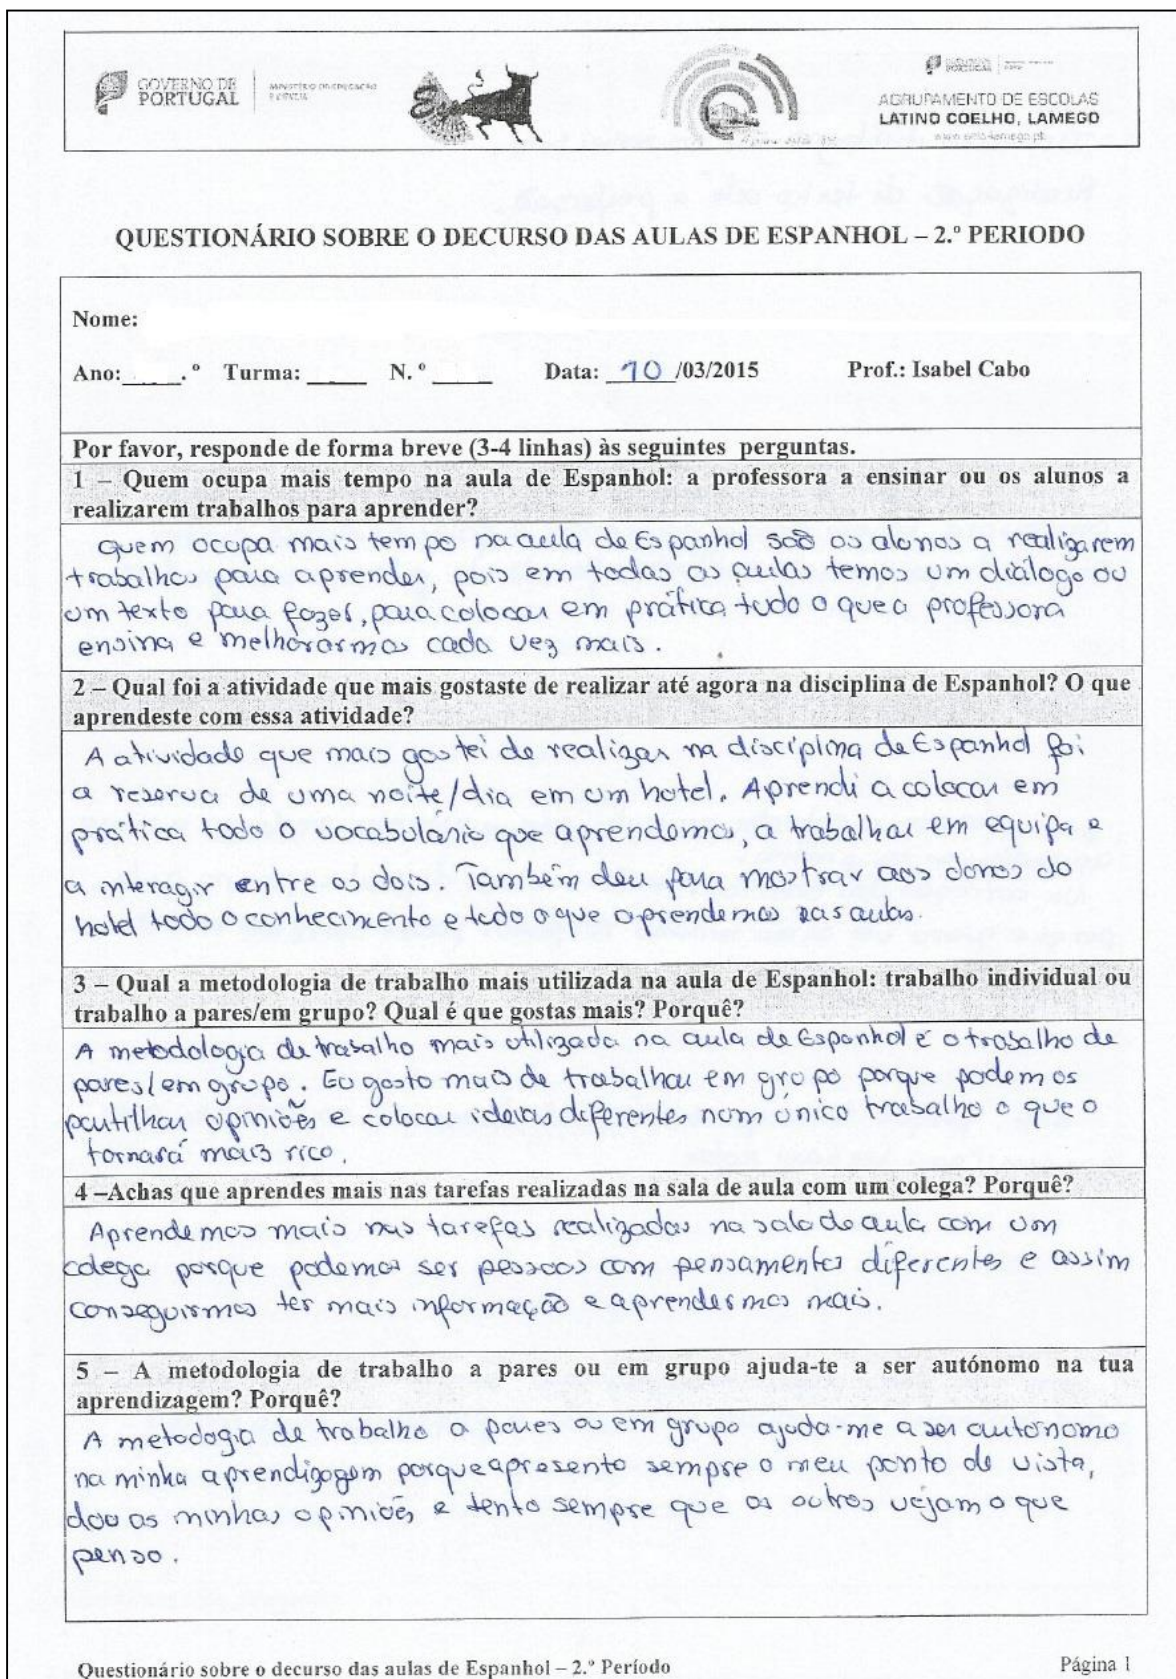 GOVERNO DE
PORTUGAL
MINISTÉRIO DA EDUCAÇÃO
E CIÊNCIA
AGRUPAMENTO DE ESCOLAS
LATINO COELHO, LAMEGO
QUESTIONÁRIO SOBRE O DECURSO DAS AULAS DE ESPANHOL – 2.º PERIODO
Nome:
Ano:____.º Turma: ____ N. º ____ Data: 10 /03/2015 Prof.: Isabel Cabo
Por favor, responde de forma breve (3-4 linhas) às seguintes perguntas.
1 – Quem ocupa mais tempo na aula de Espanhol: a professora a ensinar ou os alunos a
realizarem trabalhos para aprender?
Quem ocupa mais tempo na aula de Espanhol são os alunos a realizarem
trabalhos para aprender, pois em todas as aulas temos um diálogo ou
um texto para fazer, para colocar em prática tudo o que a professora
ensina e melhorarmos cada vez mais.
2 – Qual foi a atividade que mais gostaste de realizar até agora na disciplina de Espanhol? O que
aprendeste com essa atividade?
A atividade que mais gostei de realizar na disciplina de Espanhol foi
a reserva de uma noite/dia em um hotel. Aprendi a colocar em
prática todo o vocabulário que aprendemos, a trabalhar em equipa e
a interagir entre os dois. Também deu para mostrar aos donos do
hotel todo o conhecimento e tudo o que aprendemos nas aulas.
3 – Qual a metodologia de trabalho mais utilizada na aula de Espanhol: trabalho individual ou
trabalho a pares/em grupo? Qual é que gostas mais? Porquê?
A metodologia de trabalho mais utilizada na aula de Espanhol é o trabalho de
pares/em grupo. Eu gosto mais de trabalhar em grupo porque podemos
partilhar opiniões e colocar ideias diferentes num único trabalho o que o
tornará mais rico.
4 –Achas que aprendes mais nas tarefas realizadas na sala de aula com um colega? Porquê?
Aprendemos mais nas tarefas realizadas na sala de aula com um
colega porque podemos ser pessoas com pensamentos diferentes e assim
conseguirmos ter mais informação e aprendermos mais.
5 – A metodologia de trabalho a pares ou em grupo ajuda-te a ser autónomo na tua
aprendizagem? Porquê?
A metodogia de trabalho a pares ou em grupo ajuda-me a ser autónomo
na minha aprendizagem porque apresento sempre o meu ponto de vista,
dou as minhas opiniões e tento sempre que os outros vejam o que
penso.
Questionário sobre o decurso das aulas de Espanhol – 2.º Período Página 1